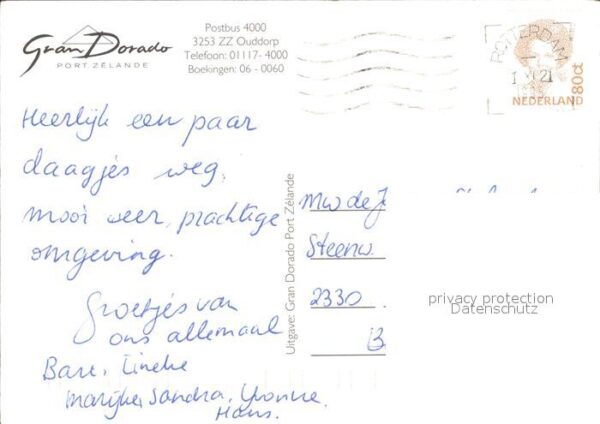 Gran Dorado
PORT ZÉLANDE
Postbus 4000
3253 ZZ Ouddorp
Telefoon: 01117- 4000
Boekingen: 06 - 0060
ROTTERDAM
21
80ct
NEDERLAND
Heerlijk een paar
daagjes weg,
mooi weer, prachtige
omgeving.
Groetjes van
ons allemaal
Bare, Lineke
Marijke Sandra, Yvonne
Hans.
Uitgave: Gran Dorado Port Zélande
Mw de J
Steenw
2330
B
privacy protection
Datenschutz